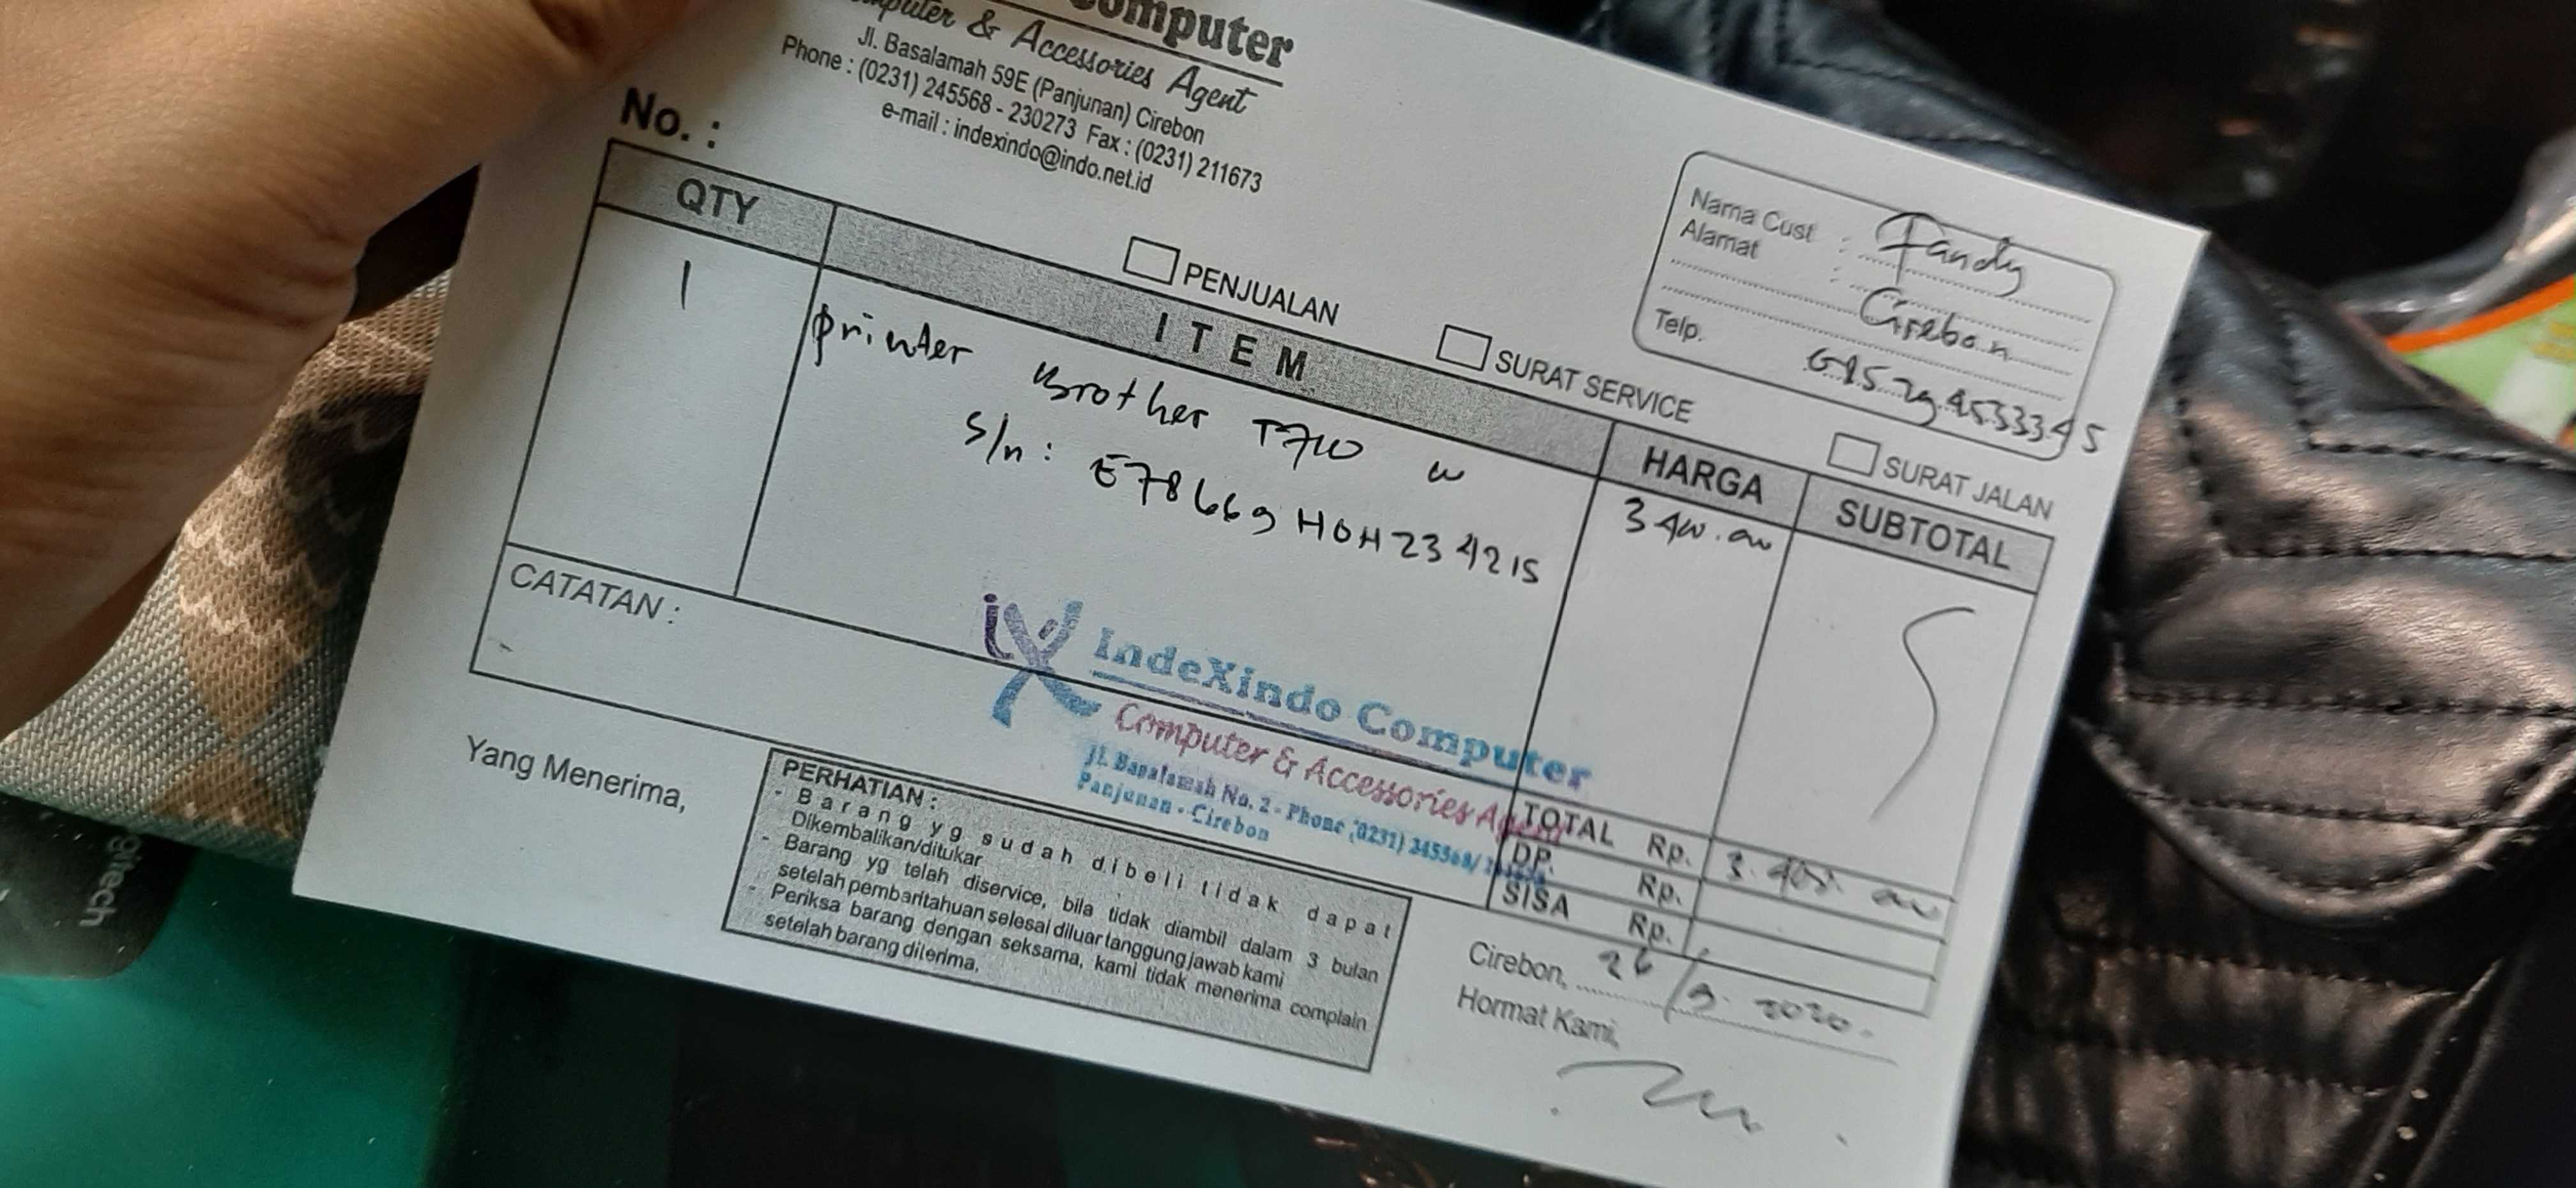 Computer
Computer & Accessories Agent
Jl. Basalamah 59E (Panjunan) Cirebon
Phone : (0231) 245568 - 230273 Fax : (0231) 211673
e-mail : indexindo@indo.net.id
No. :
Nama Cust : Fandy
Alamat : Cirebon
Telp.
PENJUALAN
SURAT SERVICE
SURAT JALAN
QTY ITEM HARGA SUBTOTAL
1 printer Brother T710 w
S/n : E78669H0H234215
CATATAN :
iX IndeXindo Computer
Computer & Accessories Agent
Jl. Basalamah No. 2 - Phone (0231) 245568/
Panjunan - Cirebon
TOTAL Rp.
DP. Rp.
SISA Rp.
Yang Menerima,
PERHATIAN :
- Barang yg sudah dibeli tidak dapat
Dikembalikan/ditukar
- Barang yg telah diservice, bila tidak diambil dalam 3 bulan
setelah pembaritahuan selesai diluar tanggung jawab kami
- Periksa barang dengan seksama, kami tidak menerima complain
setelah barang diterima.
Cirebon, 26/9-2020.
Hormat Kami,
gitech